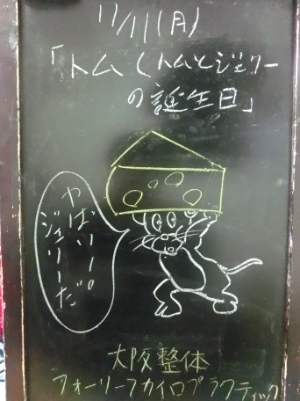 11/11(月)
「トム(トムとジェリー
の誕生日」
やばいー。
ジェリーだ
大阪整体
フォーリーフカイロプラクティック